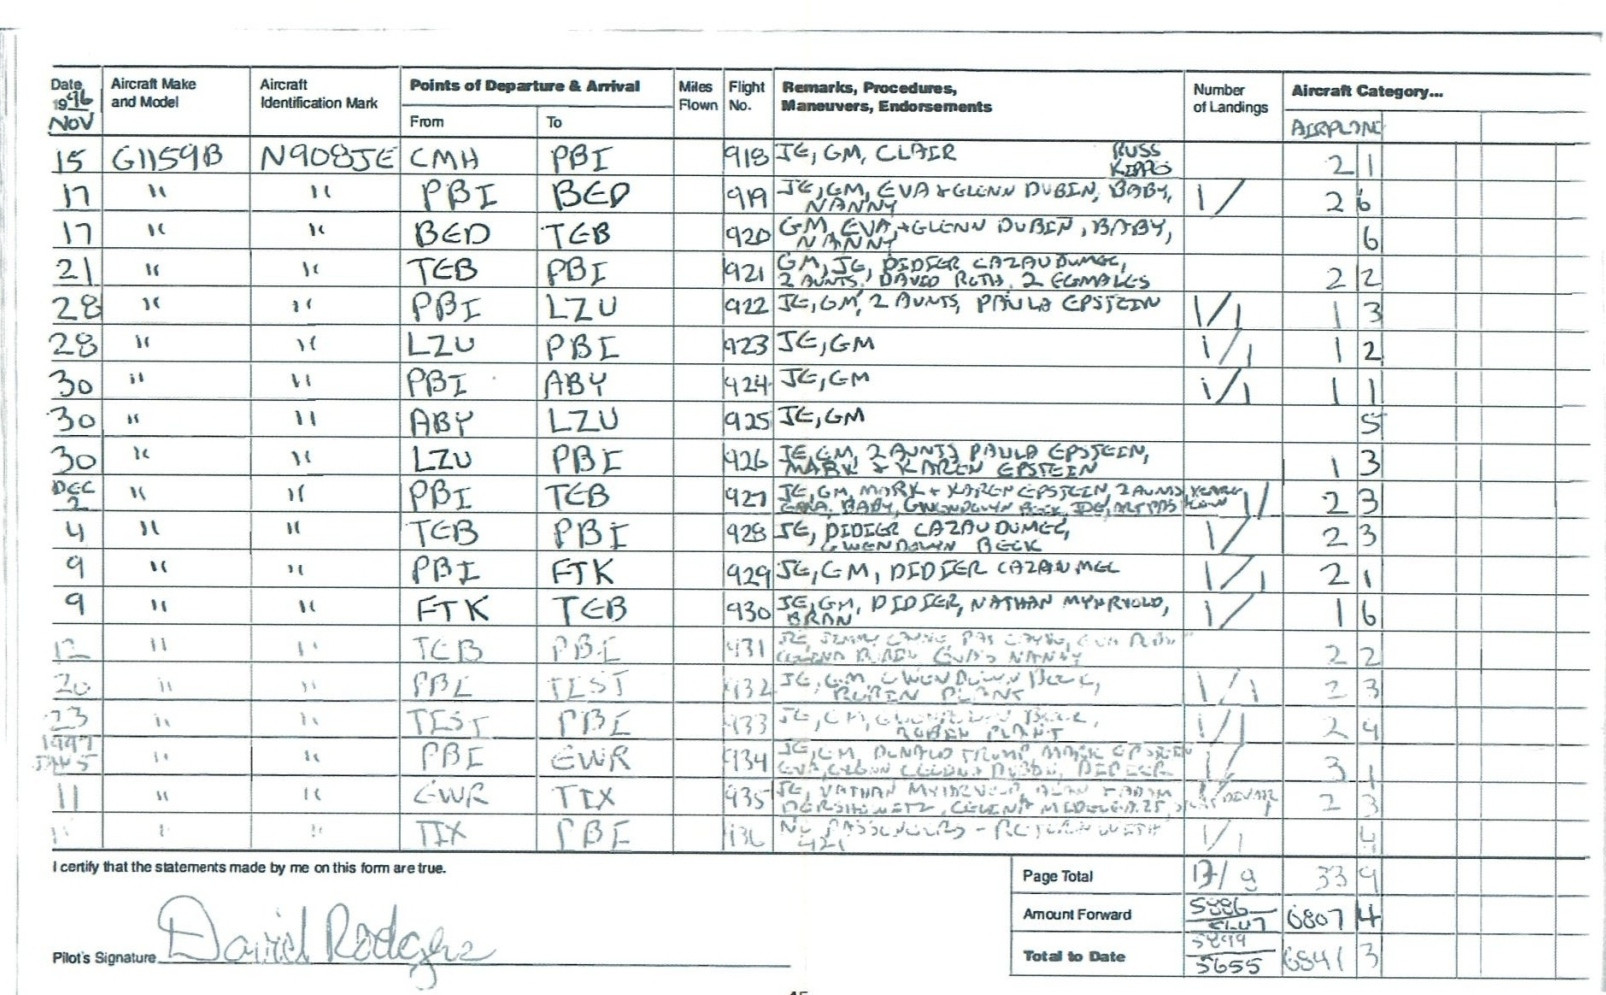 Date 1996 NOV Aircraft Make and Model Aircraft Identification Mark Points of Departure & Arrival From To Miles Flown Flight No. Remarks, Procedures, Maneuvers, Endorsements Number of Landings Aircraft Category... AIRPLANE
15 G1159B N908JE CMH PBI 918 JE, GM, CLAIR RUSS 2 1
17 " " PBI BED 919 JE, GM, EVA + GLENN DUBIN, BABY, NANNY 1/ 2 6
17 " " BED TEB 920 GM, EVA + GLENN DUBIN, BABY, NANNY 6
21 " " TEB PBI 921 GM, JE, DIDIER CAZAUDUMEC, 2 AUNTS, DAVID ROTH, 2 FEMALES 2 2
28 " " PBI LZU 922 JE, GM, 2 AUNTS, PAULA EPSTEIN 1/1 1 3
28 " " LZU PBI 923 JE, GM 1/1 1 2
30 " " PBI ABY 924 JE, GM 1/1 1 1
30 " " ABY LZU 925 JE, GM 5
30 " " LZU PBI 926 JE, GM, 2 AUNTS PAULA EPSTEIN, MARK + KAREN EPSTEIN 1 3
DEC 2 " " PBI TEB 927 JE, GM, MARK + KAREN EPSTEIN, 2 AUNTS, BABY, GWENDOLYN BECK, 1/ 2 3
4 " " TEB PBI 928 JE, DIDIER CAZAUDUMEC, GWENDOLYN BECK 1/ 2 3
9 " " PBI FTK 929 JE, GM, DIDIER CAZAUMEC 1/1 2 1
9 " " FTK TEB 930 JE, GM, DIDIER, NATHAN MYHRVOLD, BRAN 1/ 1 6
12 " " TEB PBI 931 JE, NANNY 2 2
20 " " PBI TEST 932 JE, GM, GWENDOLYN BECK, 1/1 2 3
23 " " TEST PBI 933 JE, GM, 1/1 2 4
1997 JAN 5 " " PBI EWR 934 JE, GM, DONALD TRUMP, MARK EPSTEIN EVA, GLENN CELINA DUBIN, DIDIER 1/ 3 1
11 " " EWR TIX 935 JE, NATHAN MYHRVOLD, ALAN + DERSHOWITZ, 2 3
" " TIX PBI 936 NO PASSENGERS - RETURN WITH 421 1/1 4
I certify that the statements made by me on this form are true.
Page Total 17/9 33 9
Amount Forward 6807 4
Total to Date 5899 5655 6841 3
Pilot's Signature David Rodgers